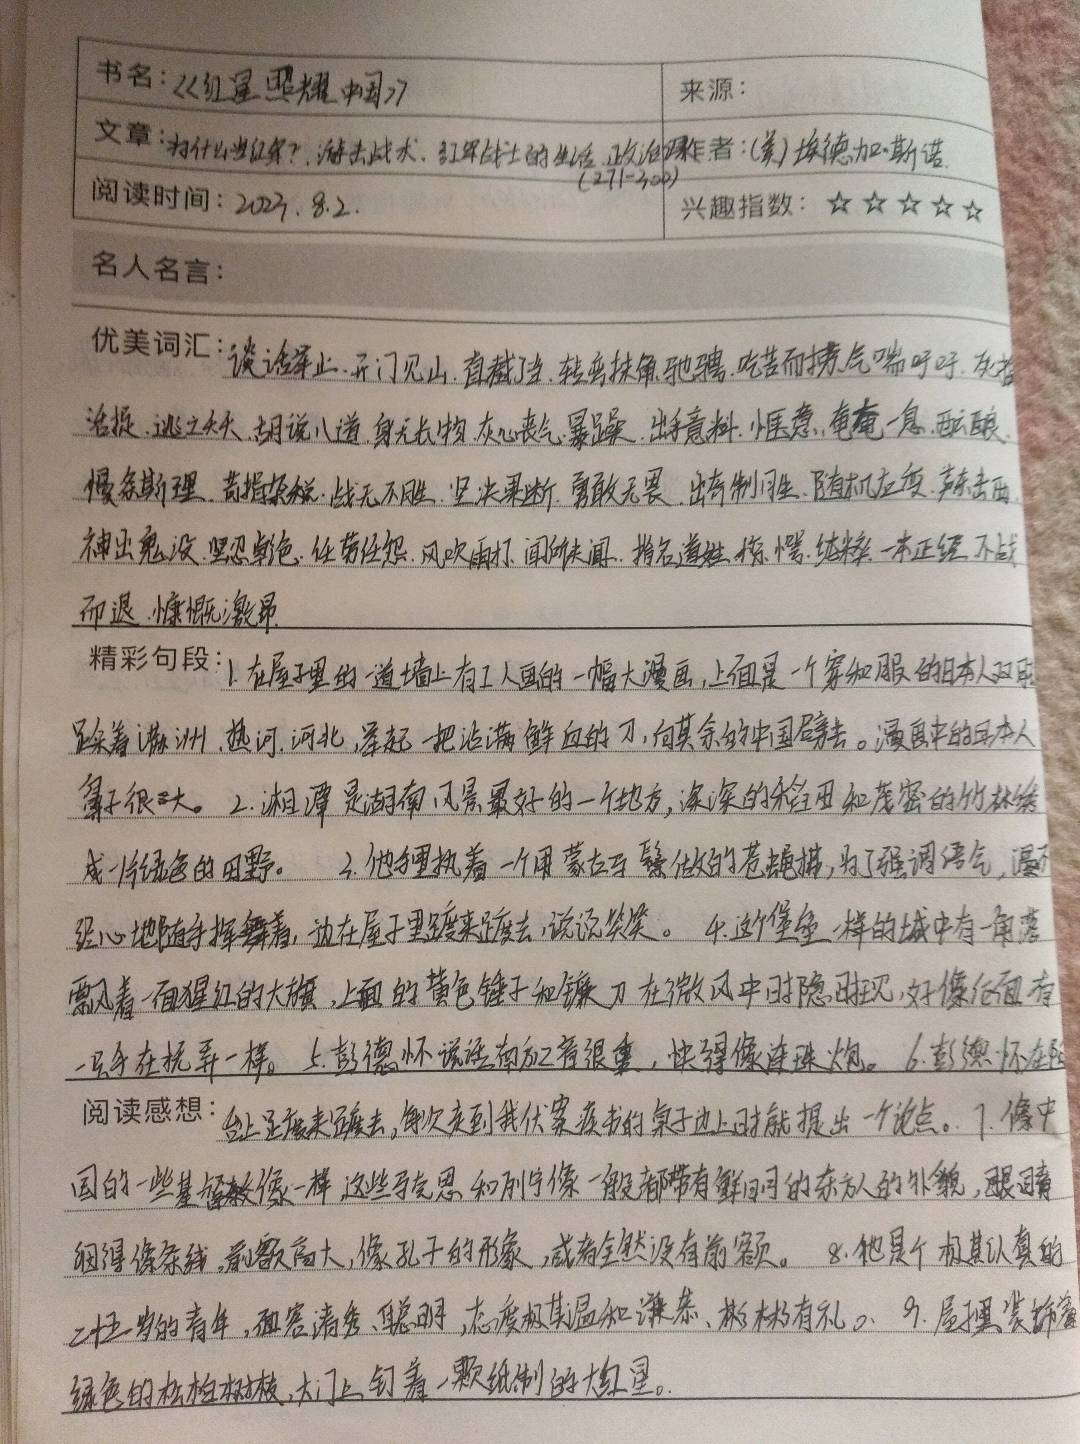 书名：《红星照耀中国》
来源：
文章：为什么当红军？、游击战术、红军战士的生活、政治课
(271-300)
作者：(美)埃德加·斯诺
阅读时间：2023.8.2.
兴趣指数：☆☆☆☆☆
名人名言：
优美词汇：谈话举止、开门见山、直截了当、转弯抹角、驰骋、吃苦耐劳、气喘吁吁、
活捉、逃之夭夭、胡说八道、身无长物、灰心丧气、暴躁、出乎意料、惬意、奄奄一息、酝酿、
慢条斯理、苛捐杂税、战无不胜、坚决果断、勇敢无畏、出奇制胜、随机应变、声东击西、
神出鬼没、坚忍卓绝、任劳任怨、风吹雨打、闻所未闻、指名道姓、纯粹、一本正经、不战
而退、慷慨激昂
精彩句段：1.在屋子里的一道墙上有工人画的一幅大漫画，上面是一个穿和服的日本人双脚
踩着满洲、热河、河北，举起一把沾满鲜血的刀，向其余的中国劈去。漫画中的日本人
鼻子很大。 2.湘潭是湖南风景最好的一个地方，深深的稻田和茂密的竹林绣
成一片绿色的田野。 3.他手里执着一个用蒙古马鬃做的苍蝇掸，为了强调语气，漫不
经心地随手挥舞着，边在屋子里踱来踱去，说说笑笑。 4.这个堡垒一样的城中有一角落
飘着一面猩红的大旗，上面的黄色锤子和镰刀在微风中时隐时现，好像后面有
一只手在抚弄一样。 5.彭德怀说话南方口音很重，快得像连珠炮。 6.彭德怀在
阅读感想：台上踱来踱去，每次走到我伏案疾书的桌子边上时就提出一个论点。 7.像中
国的一些基督教像一样，这些马克思和列宁像一般都带有鲜明的东方人的外貌，眼睛
细得像条线，前额高大，像孔子的形象，或者全然没有前额。 8.他是个极其认真的
二十五岁的青年，面容清秀、聪明，态度极其温和谦恭、彬彬有礼。 9.屋里装饰着
绿色的松柏树枝，大门上钉着一颗纸制的大红星。